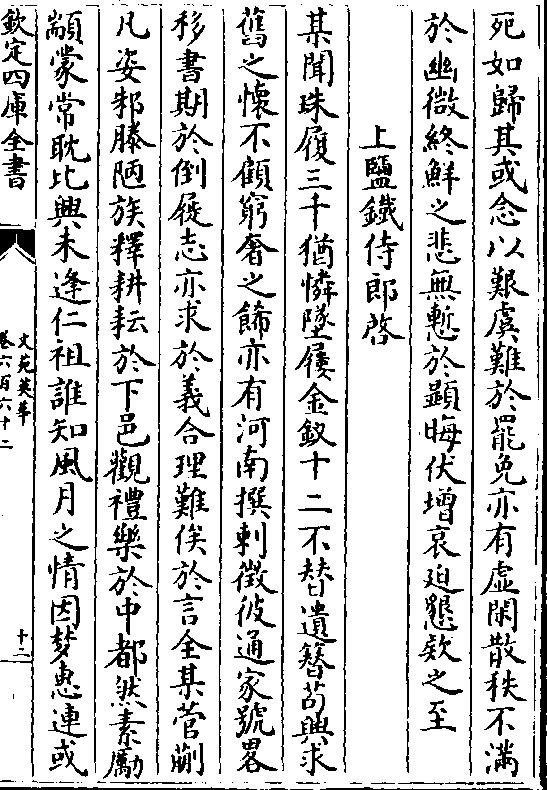 死如歸其或念以艱虞難於罷免亦有虛閑散秩不滿
於幽微終鮮之悲無慙於顯晦伏增哀迫懇欵之至
上鹽鐵侍郎啓
某聞珠履三千猶憐墜屨金釵十二不替遺簪苟興求
舊之懷不顧窮奢之飾亦有河南撰刺徴彼通家號畧
移書期於倒屣志亦求於義合理難俟於言全某菅蒯
凡姿邾滕陋族釋耕耘於下邑觀禮樂於中都然素勵
顓蒙常耽比興未逢仁祖誰知風月之情因夢惠連或
欽定四庫全書
文苑英華
卷六百六十二
十二